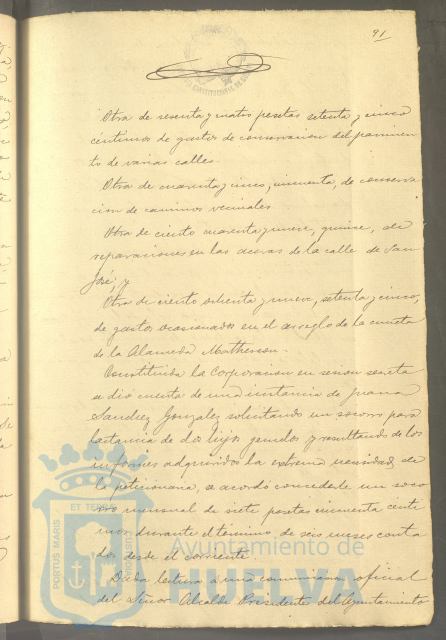 91
Otra de sesenta y cuatro pesetas setenta y cinco
céntimos de gastos de conservacion del pavimen
to de varias calles.
Otra de cuarenta y cinco, cincuenta, de conserva
cion de caminos vecinales
Otra de ciento cuarenta y nueve, quince, de
reparaciones en las aceras de la calle de San
José; y
Otra de ciento ochenta y nueve, setenta y cinco,
de gastos ocasionados en el arreglo de la cuneta
de la Alameda Matheson.
Constituida la Corporacion en sesion secreta
se dio cuenta de una instancia de Juana
Sanchez Gonzalez solicitando un socorro para
lactancia de dos hijos gemelos y resultando de los
informes adquiridos la extrema necesidad de
la peticionaria, se acordó concederle un soco
rro mensual de siete pesetas cincuenta cénti
mos durante el término de seis meses conta
dos desde el corriente.
Dada lectura a una comunicacion oficial
del Señor Alcalde Presidente del Ayuntamiento
PORTUS MARIS ET TERRAE CUSTODIA
Ayuntamiento de
HUELVA